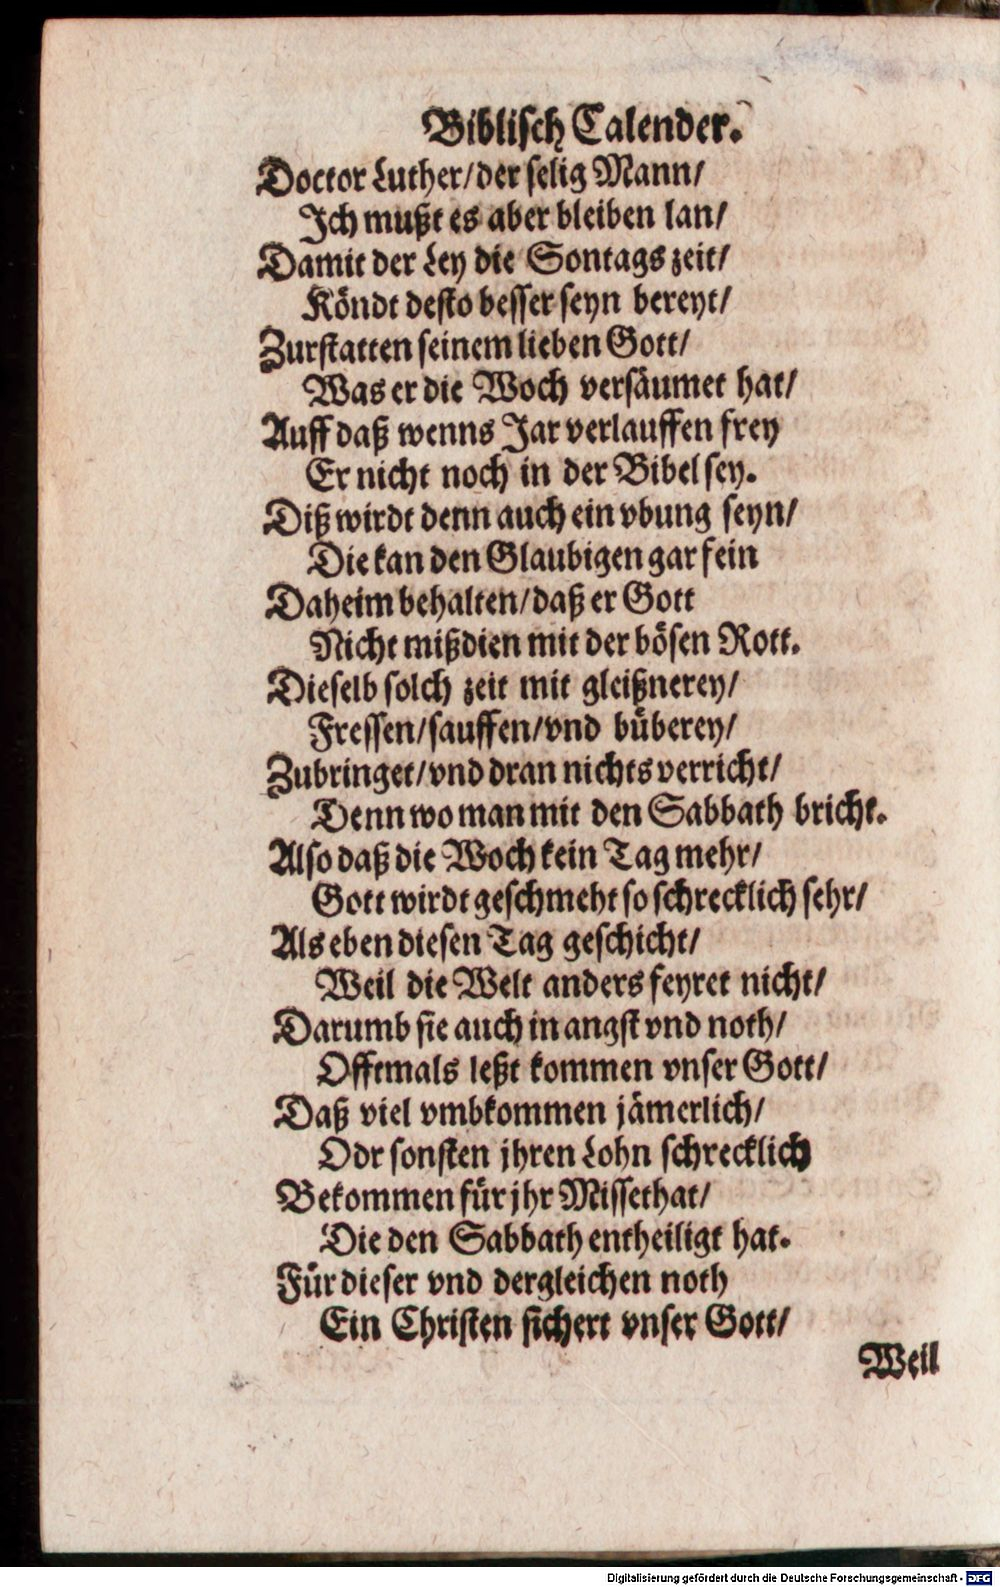 Biblisch Calender.
Doctor Luther/der selig Mann/
Ich mußt es aber bleiben lan/
Damit der Ley die Sontags zeit/
Köndt desto besser seyn bereyt/
Zurstatten seinem lieben Gott/
Was er die Woch versäumet hat/
Auff daß wenns Jar verlauffen frey
Er nicht noch in der Bibel sey.
Diß wirdt denn auch ein vbung seyn/
Die kan den Glaubigen gar fein
Daheim behalten/daß er Gott
Nicht mißdien mit der bösen Rott.
Dieselb solch zeit mit gleißnerey/
Fressen/sauffen/vnd büberey/
Zubringet/vnd dran nichts verricht/
Denn wo man mit den Sabbath bricht.
Also daß die Woch kein Tag mehr/
Gott wirdt geschmeht so schrecklich sehr/
Als eben diesen Tag geschicht/
Weil die Welt anders feyret nicht/
Darumb sie auch in angst vnd noth/
Offtmals leßt kommen vnser Gott/
Daß viel vmbkommen jämerlich/
Odr sonsten jhren Lohn schrecklich
Bekommen für jhr Missethat/
Die den Sabbath entheiligt hat.
Für dieser vnd dergleichen noth
Ein Christen sichert vnser Gott/
Weil
Digitalisierung gefördert durch die Deutsche Forschungsgemeinschaft - DFG